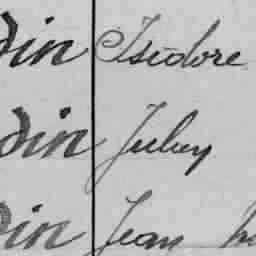 din Isidore
din Juley
din Jean